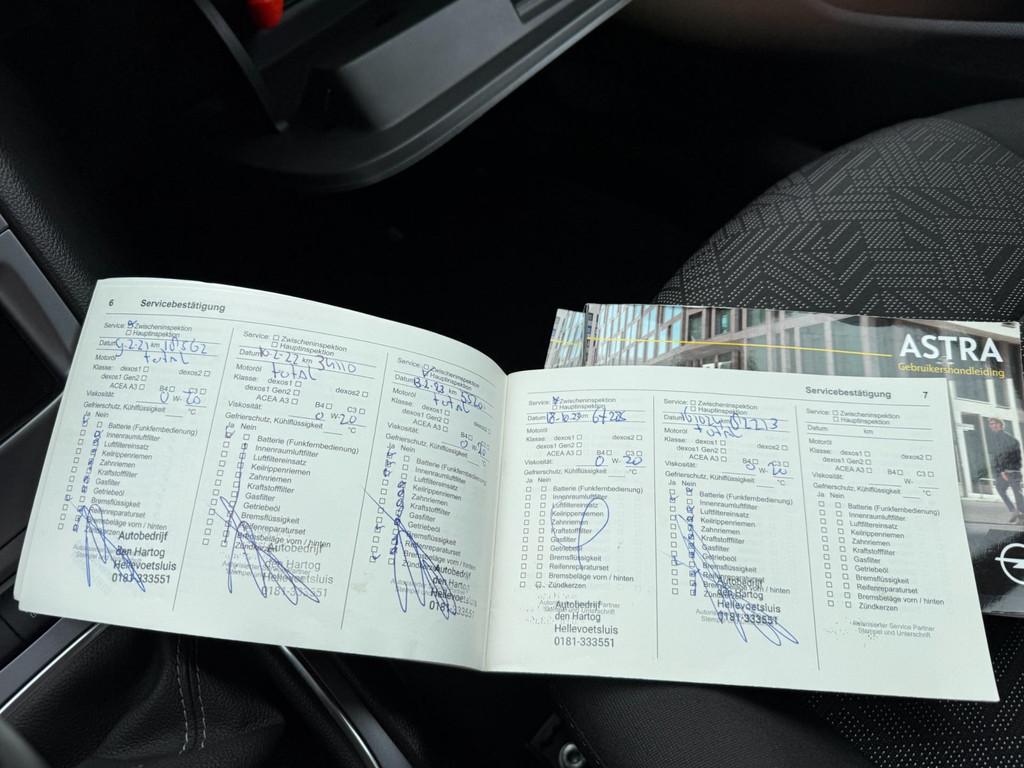 6 Servicebestätigung
Service: Zwischeninspektion
Hauptinspektion
Datum 9-2-21 km
Motoröl total
Klasse: dexos1 dexos2
dexos1 Gen2
ACEA A3 B4 C3
Viskosität: 0 W- 20
Gefrierschutz, Kühlflüssigkeit °C
Ja Nein
Batterie (Funkfernbedienung)
Innenraumluftfilter
Luftfiltereinsatz
Keilrippenriemen
Zahnriemen
Kraftstofffilter
Gasfilter
Getriebeöl
Bremsflüssigkeit
Reifenreparaturset
Bremsbeläge vorn / hinten
Autobedrijf
den Hartog
Hellevoetsluis
0181-333551
Service: Zwischeninspektion
Hauptinspektion
Datum 10-2-22 km 34110
Motoröl total
Klasse: dexos1 dexos2
dexos1 Gen2
ACEA A3 B4 C3
Viskosität: 0 W- 20
Gefrierschutz, Kühlflüssigkeit °C
Ja Nein
Batterie (Funkfernbedienung)
Innenraumluftfilter
Luftfiltereinsatz
Keilrippenriemen
Zahnriemen
Kraftstofffilter
Gasfilter
Getriebeöl
Bremsflüssigkeit
Reifenreparaturset
Bremsbeläge vorn / hinten
Zündkerzen
Autobedrijf
den Hartog
Hellevoetsluis
0181-333551
Service: Zwischeninspektion
Hauptinspektion
Datum km
Motoröl total
Klasse: dexos1 dexos2
dexos1 Gen2
ACEA A3 B4 C3
Viskosität: 0 W- 20
Gefrierschutz, Kühlflüssigkeit °C
Ja Nein
Batterie (Funkfernbedienung)
Innenraumluftfilter
Luftfiltereinsatz
Keilrippenriemen
Zahnriemen
Kraftstofffilter
Gasfilter
Getriebeöl
Bremsflüssigkeit
Reifenreparaturset
Bremsbeläge vorn / hinten
Zündkerzen
Autobedrijf
den Hartog
Hellevoetsluis
0181-333551
ASTRA
Gebruikershandleiding
Servicebestätigung 7
Service: Zwischeninspektion
Hauptinspektion
Datum 18-10-23 km
Motoröl
Klasse: dexos1 dexos2
dexos1 Gen2
ACEA A3 B4 C3
Viskosität: 0 W- 20
Gefrierschutz, Kühlflüssigkeit °C
Ja Nein
Batterie (Funkfernbedienung)
Innenraumluftfilter
Luftfiltereinsatz
Keilrippenriemen
Zahnriemen
Kraftstofffilter
Gasfilter
Getriebeöl
Bremsflüssigkeit
Reifenreparaturset
Bremsbeläge vorn / hinten
Zündkerzen
Autobedrijf
den Hartog
Hellevoetsluis
0181-333551
Service: Zwischeninspektion
Hauptinspektion
Datum km 82213
Motoröl total
Klasse: dexos1 dexos2
dexos1 Gen2
ACEA A3 B4 C3
Viskosität: 0 W- 20
Gefrierschutz, Kühlflüssigkeit °C
Ja Nein
Batterie (Funkfernbedienung)
Innenraumluftfilter
Luftfiltereinsatz
Keilrippenriemen
Zahnriemen
Kraftstofffilter
Gasfilter
Getriebeöl
Bremsflüssigkeit
Reifenreparaturset
Bremsbeläge vorn / hinten
Zündkerzen
Autobedrijf
den Hartog
Hellevoetsluis
0181-333551
Service: Zwischeninspektion
Hauptinspektion
Datum km
Motoröl
Klasse: dexos1 dexos2
dexos1 Gen2
ACEA A3 B4 C3
Viskosität: W-
Gefrierschutz, Kühlflüssigkeit °C
Ja Nein
Batterie (Funkfernbedienung)
Innenraumluftfilter
Luftfiltereinsatz
Keilrippenriemen
Zahnriemen
Kraftstofffilter
Gasfilter
Getriebeöl
Bremsflüssigkeit
Reifenreparaturset
Bremsbeläge vorn / hinten
Zündkerzen
Autorisierter Service Partner
Stempel und Unterschrift